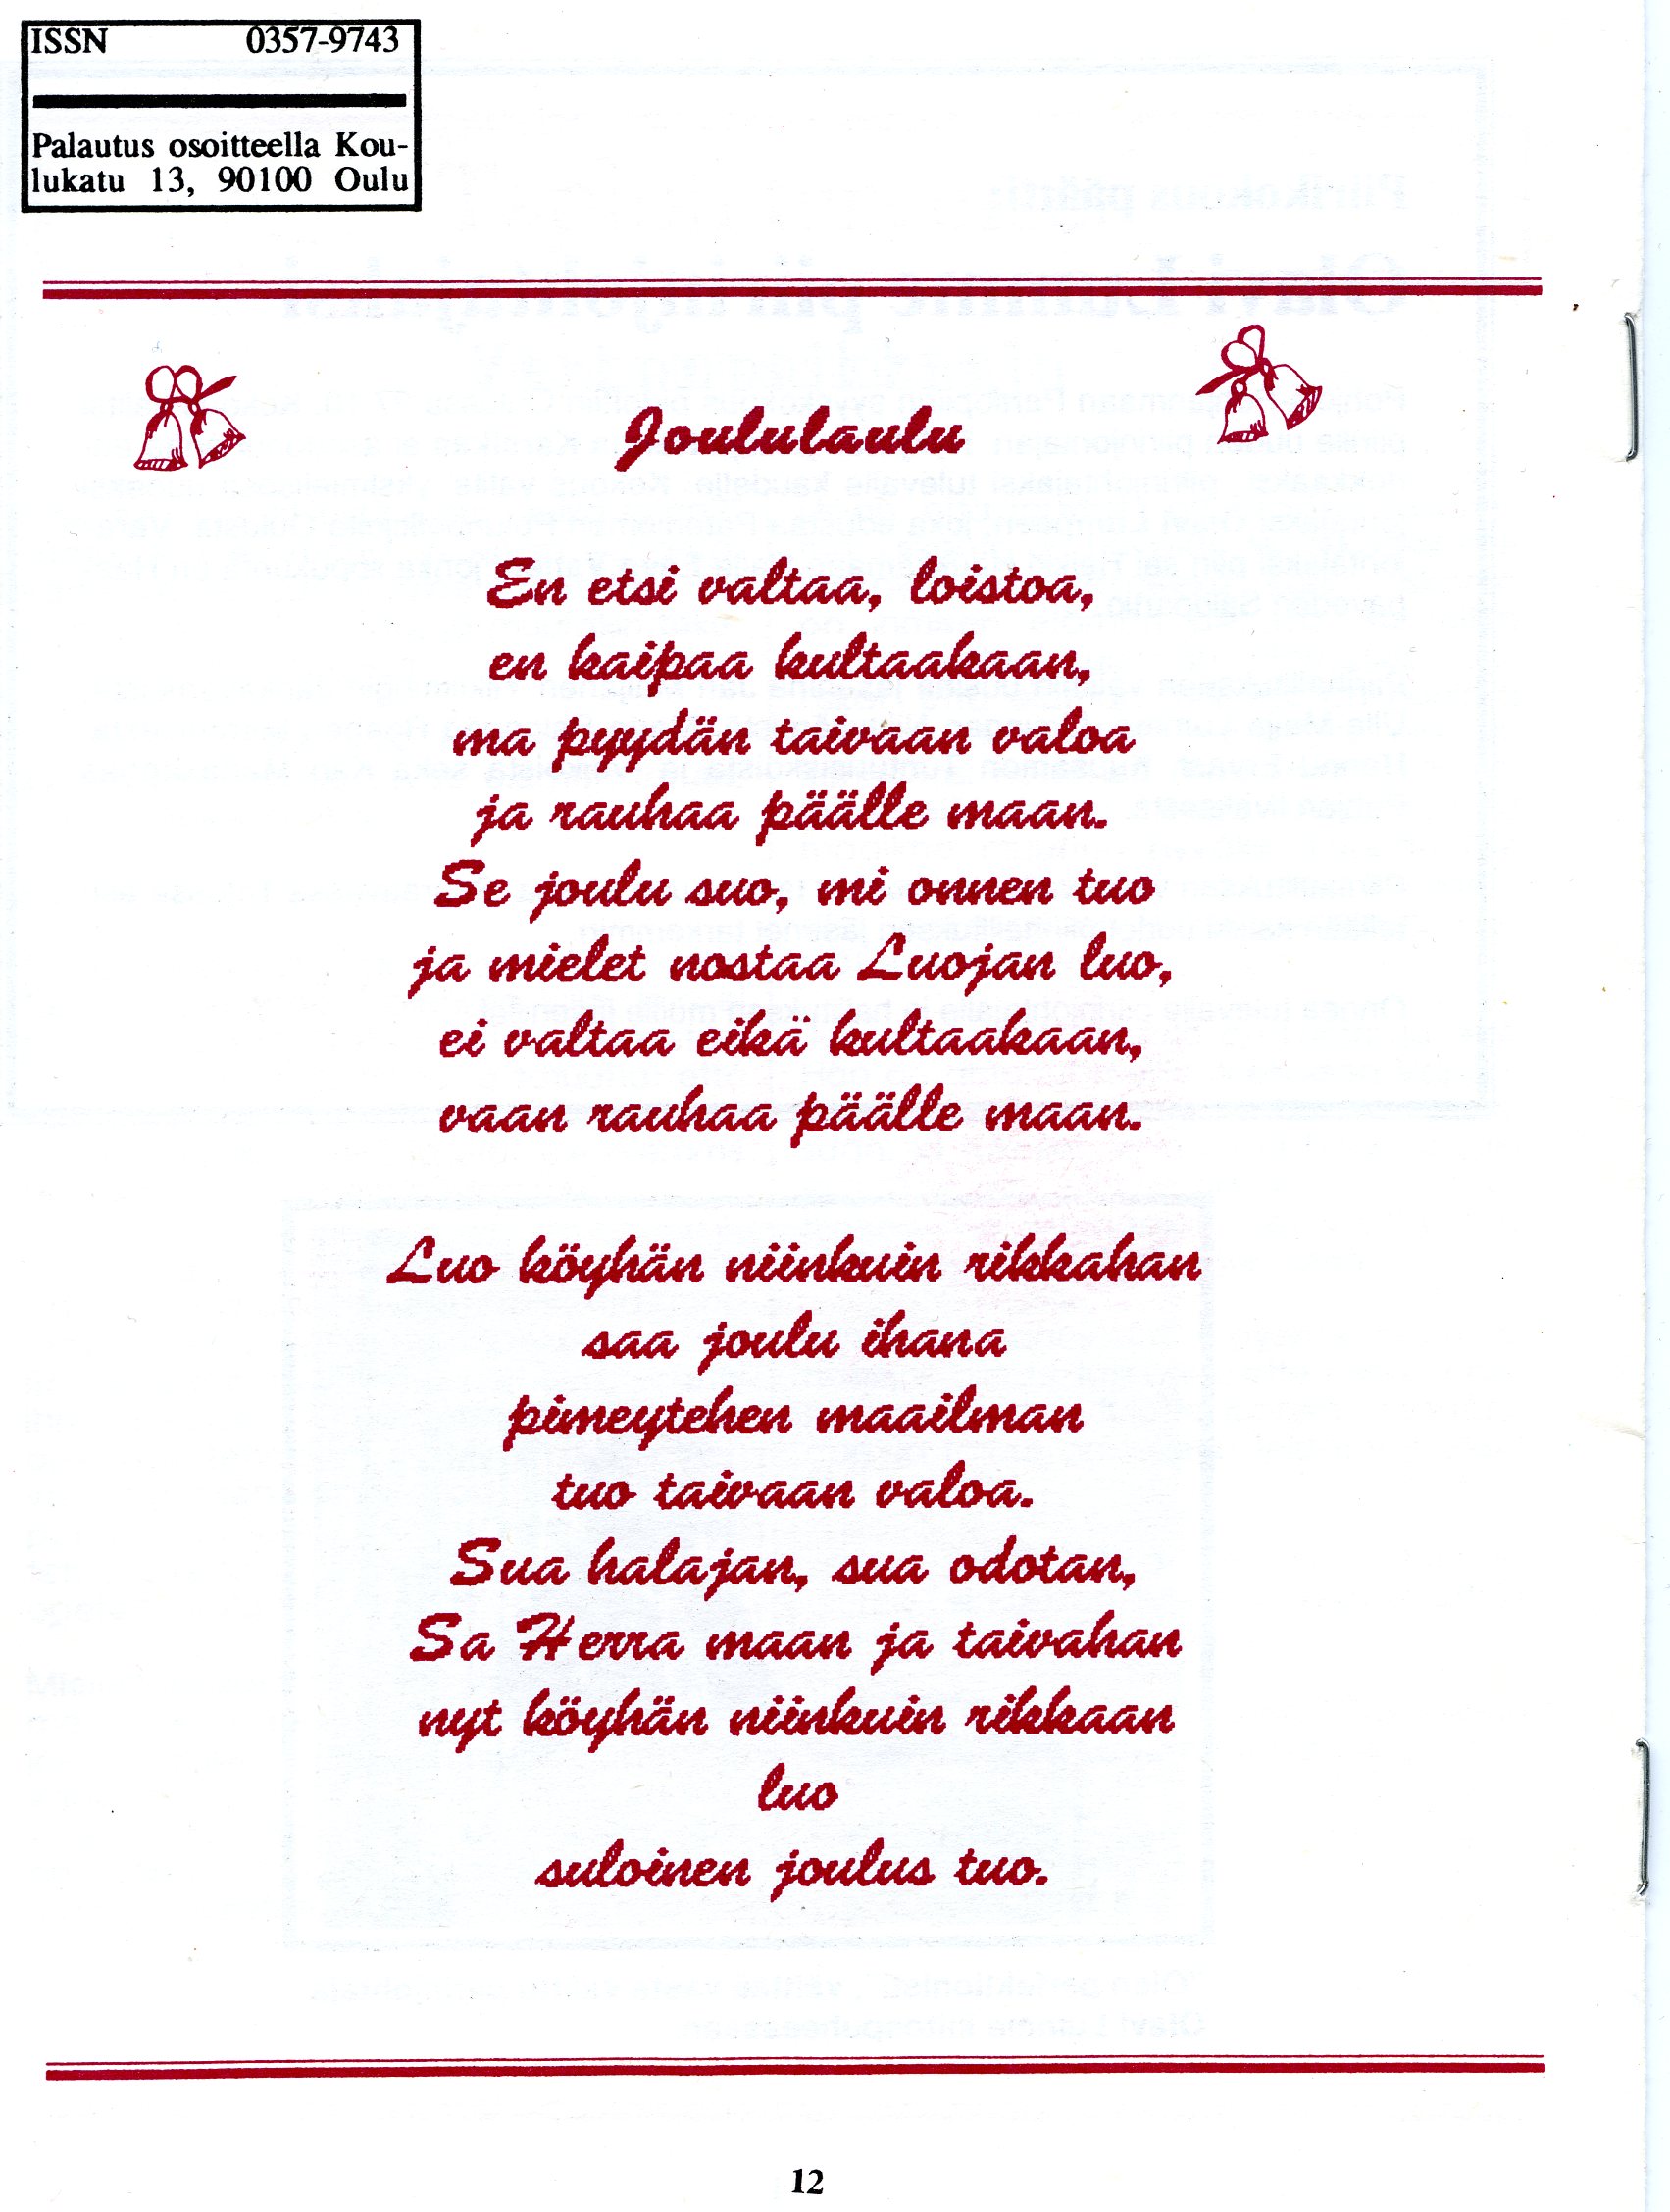 ISSN 0357-9743
Palautus osoitteella Kou-
lukatu 13, 90100 Oulu
Joululaulu
En etsi valtaa, loistoa,
en kaipaa kultaakaan,
ma pyydän taivaan valoa
ja rauhaa päälle maan.
Se joulu suo, mi onnen tuo
ja mielet nostaa Luojan luo,
ei valtaa eikä kultaakaan,
vaan rauhaa päälle maan.
Luo köyhän niinkuin rikkahan
saa joulu ihana
pimeytehen maailman
tuo taivaan valoa.
Sua halajan, sua odotan,
Sa Herra maan ja taivahan
nyt köyhän niinkuin rikkaan
luo
suloinen joulus tuo.
12